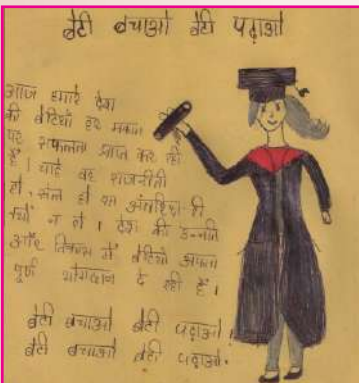 बेटी बचाओ बेटी पढ़ाओ
आज हमारे देश
की बेटियाँ हर मकान
पर सफलता प्राप्त कर रही
हैं । चाहे वह राजनीती
हो, खेल हो या अंतरिक्ष ही
क्यों न हो । देश की उन्नति
और विकास में बेटियाँ अपना
पूर्ण योगदान दे रही हैं ।
बेटी बचाओ बेटी पढ़ाओ !
बेटी बचाओ बेटी पढ़ाओ.